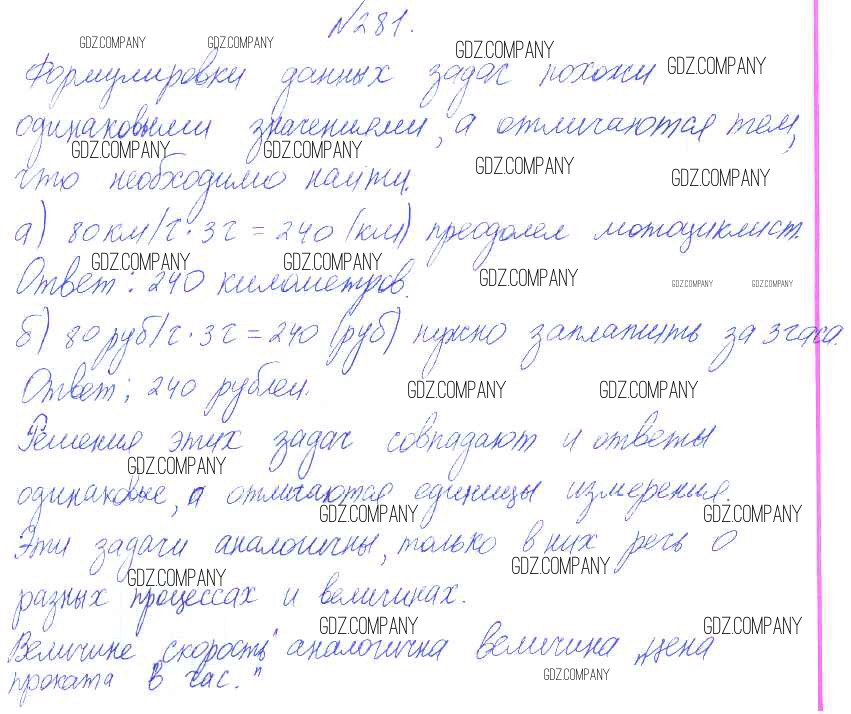 №281.
GDZ.COMPANY GDZ.COMPANY GDZ.COMPANY GDZ.COMPANY
Формулировки данных задач похожи
одинаковыми значениями, а отличаются тем,
GDZ.COMPANY GDZ.COMPANY GDZ.COMPANY GDZ.COMPANY
что необходимо найти.
а) 80 км/ч · 3 ч = 240 (км) преодолел мотоциклист.
GDZ.COMPANY GDZ.COMPANY GDZ.COMPANY GDZ.COMPANY GDZ.COMPANY
Ответ: 240 километров.
б) 80 руб/ч · 3 ч = 240 (руб) нужно заплатить за 3 часа.
Ответ: 240 рублей.
GDZ.COMPANY GDZ.COMPANY
Решения этих задач совпадают и ответы
GDZ.COMPANY
одинаковые, а отличаются единицы измерения.
GDZ.COMPANY GDZ.COMPANY
Эти задачи аналогичны, только в них речь о
GDZ.COMPANY GDZ.COMPANY
разных процессах и величинах.
GDZ.COMPANY GDZ.COMPANY
Величине „скорость" аналогична величина „цена
проката в час."
GDZ.COMPANY